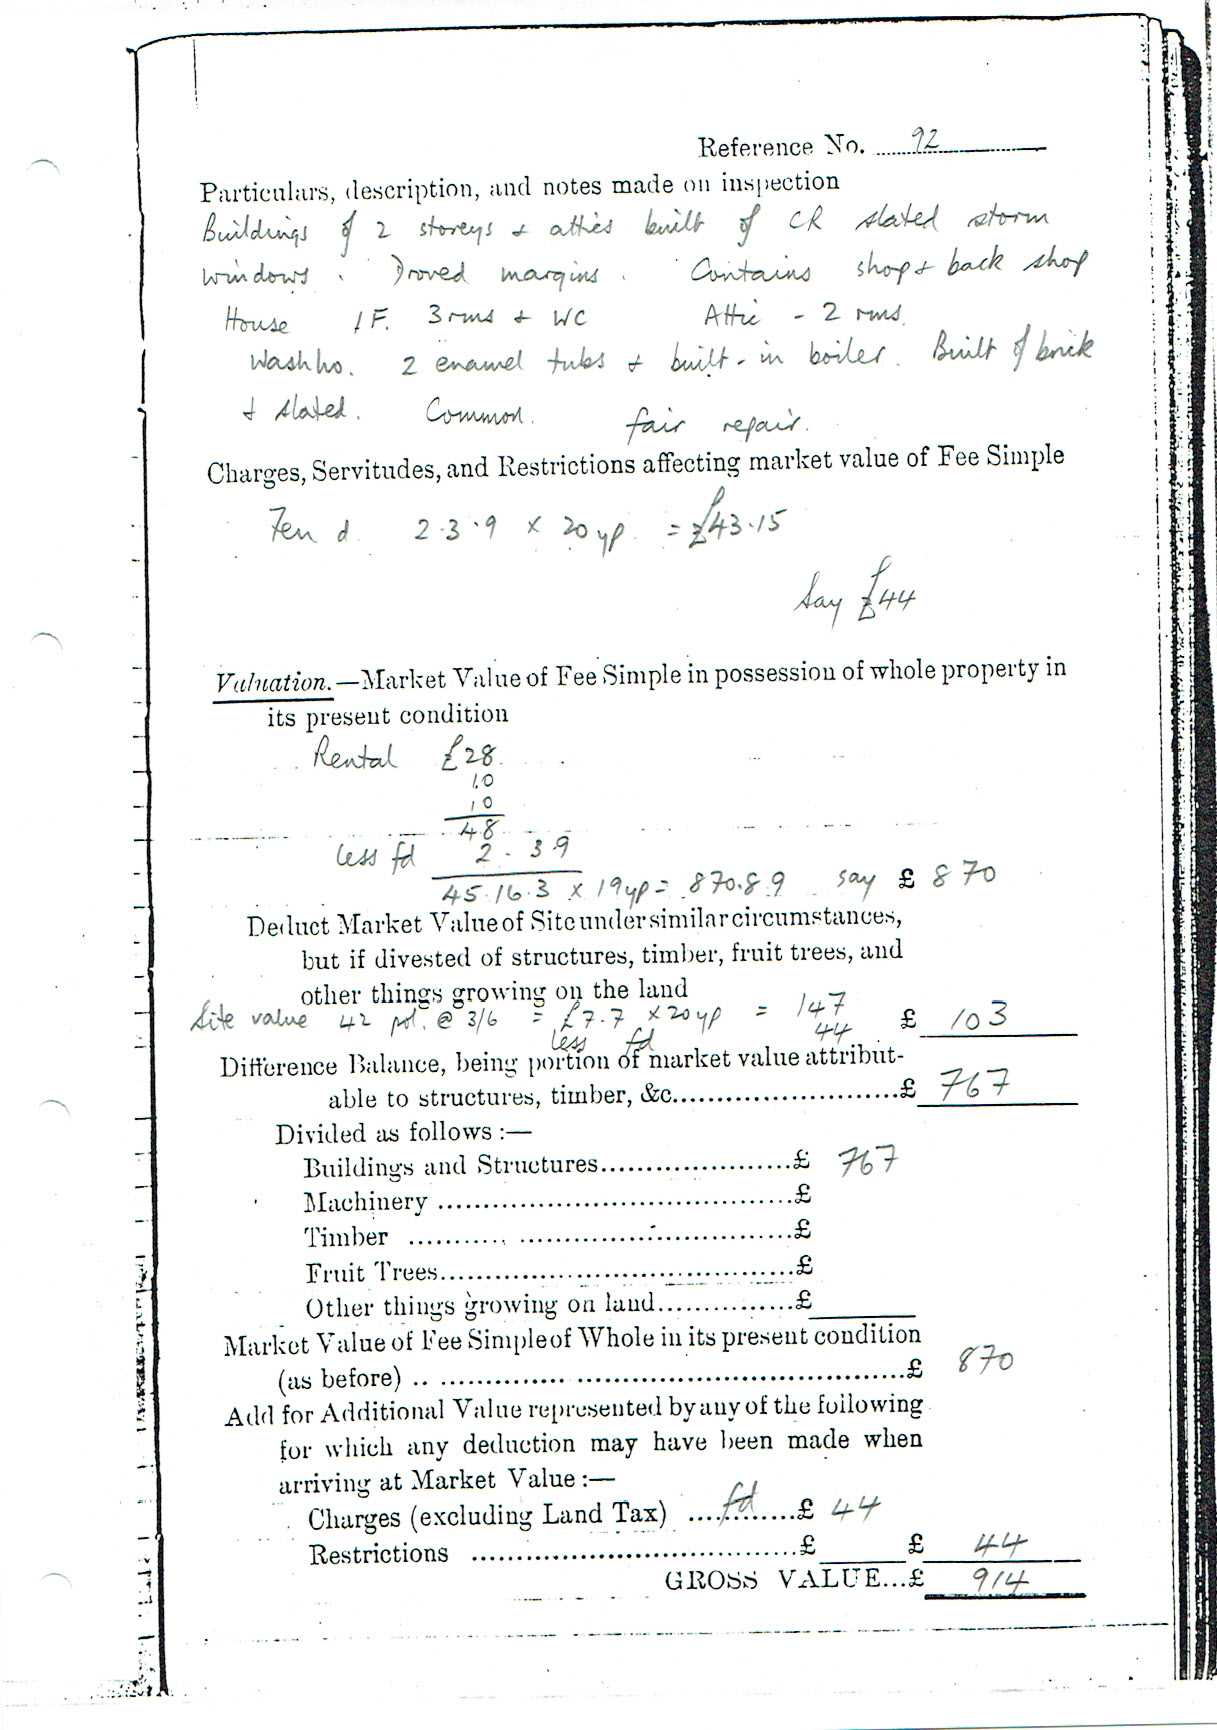 Reference No. 92
Particulars, description, and notes made on inspection
Buildings of 2 storeys & attics built of CR slated storm
windows. Droved margins. Contains shop & back shop
House 1F. 3 rms & WC Attic - 2 rms.
Wash ho. 2 enamel tubs & built-in boiler. Built of brick
& slated. Common. fair repair.
Charges, Servitudes, and Restrictions affecting market value of Fee Simple
Feu d. 2.3.9 x 20 yp = £43.15
Say £44
Valuation.—Market Value of Fee Simple in possession of whole property in
its present condition
Rental £28
10
10
48
less fd 2.3.9
45.16.3 x 19 yp = 870.8.9 say £ 870
Deduct Market Value of Site under similar circumstances,
but if divested of structures, timber, fruit trees, and
other things growing on the land
Site value 42 pol. @ 3/6 = £7.7 x 20 yp = 147 £ 103
less fd 44
Difference Balance, being portion of market value attribut-
able to structures, timber, &c. £ 767
Divided as follows :—
Buildings and Structures £ 767
Machinery £
Timber £
Fruit Trees £
Other things growing on land £
Market Value of Fee Simple of Whole in its present condition
(as before) £ 870
Add for Additional Value represented by any of the following
for which any deduction may have been made when
arriving at Market Value :—
Charges (excluding Land Tax) fd £ 44
Restrictions £ £ 44
GROSS VALUE...£ 914